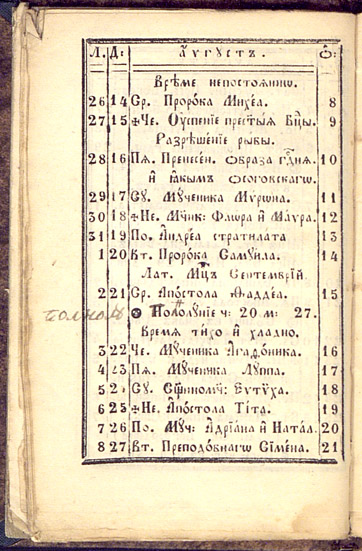 Л. Д: Аѵгꙋстъ. Ѿ:
Врѣме непостоянно.
26 14 Ср. Проро́ка Михе́а. 8
27 15 ✠Че. Оуспение прест҃ыя Бц҃ы. 9
Разрѣше́ние рыбы.
28 16 Пя. Пренесе́н. ѡбраза гдⷭ҇ня. 10
И҆ І҆ѡаки́м Ѡсоговскагѡ
29 17 Сꙋ. Мꙋ́ченика Мѵ́рѡна. 11
30 18 ✠Не. Мч҃ик: Флѡ́ра и҆ Ма́ѵра. 12
31 19 По. А҆ндре́а стратила́та 13
1 20 Вт. Проро́ка Самꙋи́ла. 14
Лат. Мц҃ъ Септемврі́й.
2 21 Ср. А҆по́стола Ѳадде́а. 15
Пололꙋ́нїе ч: 20 м: 27.
Время ти́хо и҆ хла́дно.
3 22 Че. Мꙋ́ченика Агаѳо́ника. 16
4 23 Пя. Мꙋ́ченика Лꙋ́ппа. 17
5 2 Сꙋ. Сщ҃нномꙋч: Еѵтѵ́ха. 18
6 25 ✠Не. А҆по́стола Ті́та. 19
7 26 По. Мꙋч: А҆дрїа́на и҆ Ната́л. 20
8 27 Вт. Преподо́бнагѡ Сіме́на. 21